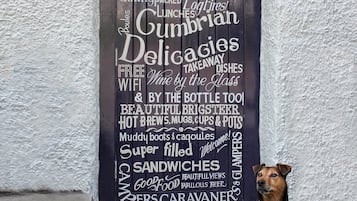 PACKED Logfires!
LUNCHES
Cumbrian
Delicacies
FREE TAKEAWAY DISHES
WIFI Wine by the Glass
& BY THE BOTTLE TOO!
BEAUTIFUL BRIGSTEER
HOT BREWS, MUGS, CUPS & POTS
Muddy boots & cagoules
Super filled Welcome!
SANDWICHES
GOOD FOOD BEAUTIFUL VIEWS
CAMPERS CARAVANERS & GLAMPERS